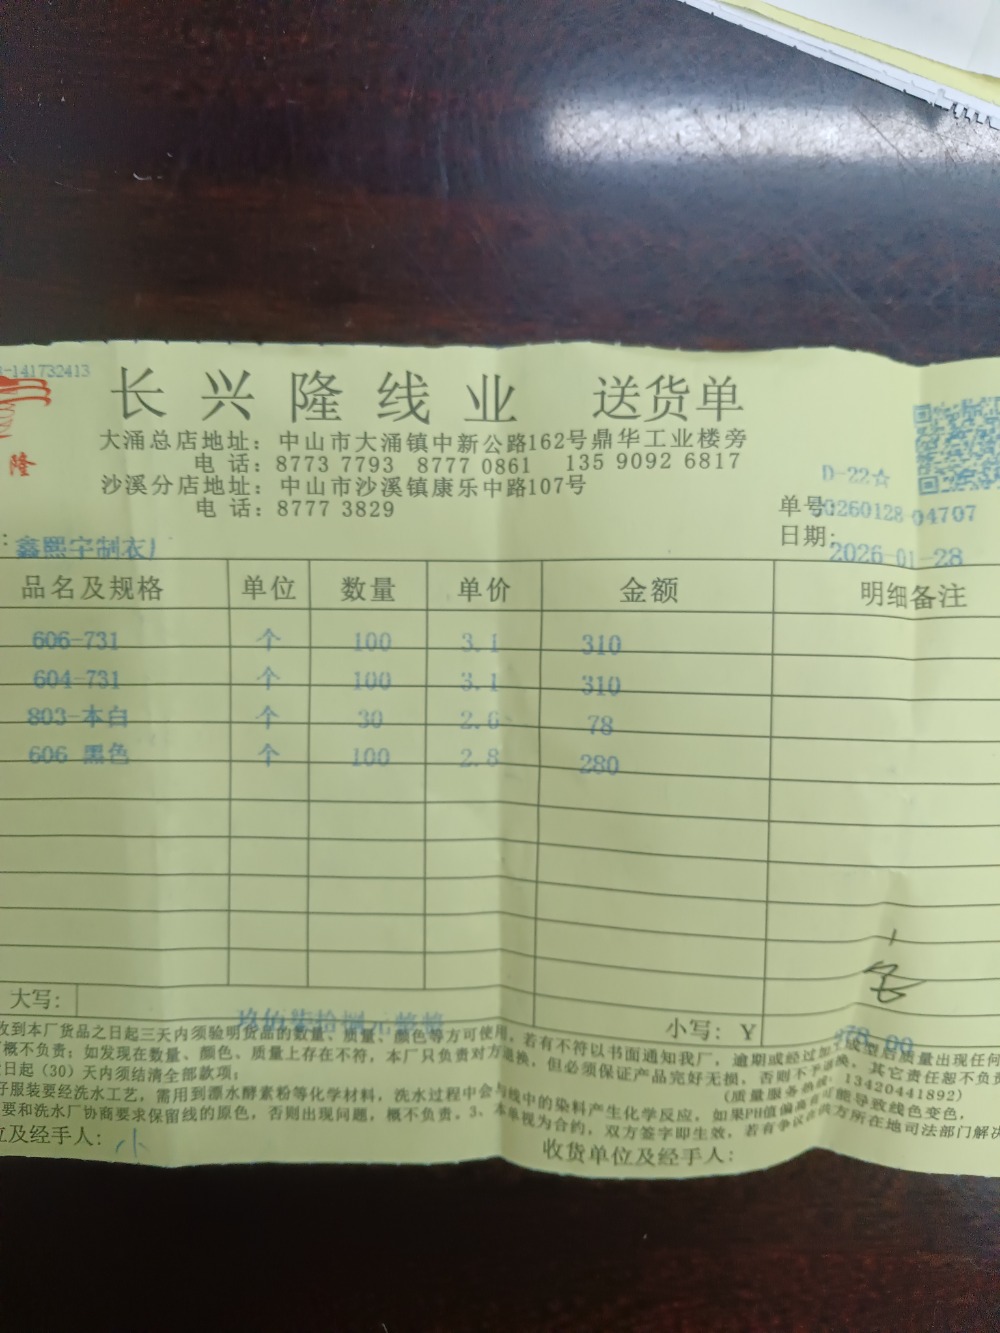 -141732413
长兴隆线业 送货单
隆
大涌总店地址：中山市大涌镇中新公路162号鼎华工业楼旁
电 话：8773 7793 8777 0861 135 9092 6817
沙溪分店地址：中山市沙溪镇康乐中路107号
电 话：8777 3829
D-22☆
单号:20260128-04707
日期:2026-01-28
：鑫熙宇制衣厂
品名及规格 单位 数量 单价 金额 明细备注
606-731 个 100 3.1 310
604-731 个 100 3.1 310
803-本白 个 30 2.6 78
606 黑色 个 100 2.8 280
大写： 玖佰柒拾捌元整 小写：Y 978.00
收到本厂货品之日起三天内须验明货品的数量、质量、颜色等方可使用，若有不符以书面通知我厂，逾期或经过加工成型后质量出现任何
概不负责；如发现在数量、颜色、质量上存在不符，本厂只负责对方退换，但必须保证产品完好无损，否则不予退换，其它责任恕不负责
日起（30）天内须结清全部款项； （质量服务热线：13420441892）
子服装要经洗水工艺，需用到漂水酵素粉等化学材料，洗水过程中会与线中的染料产生化学反应，如果PH值偏高有可能导致线色变色，
要和洗水厂协商要求保留线的原色，否则出现问题，概不负责。3、本单视为合约，双方签字即生效，若有争议在供方所在地司法部门解决
位及经手人：小 收货单位及经手人：